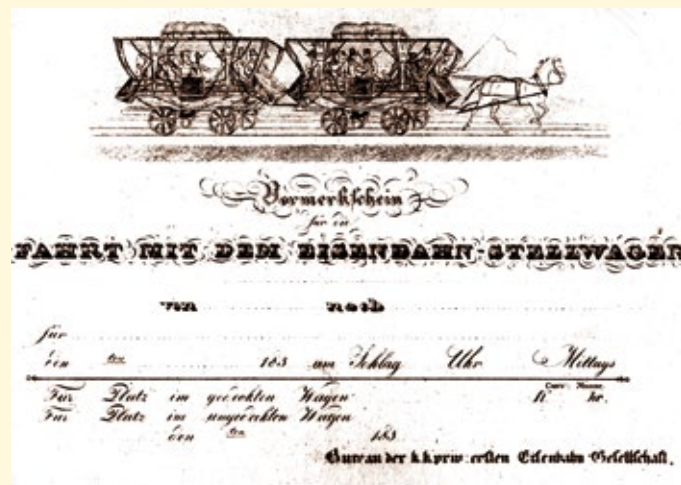 Vormerkschein
für die
FAHRT MIT DEM EISENBAHN-STELLWAGEN
von nach
für
den ten 183 um Schlag Uhr Mittags
Für Platz im gedeckten Wagen fl. kr.
Für Platz im ungedeckten Wagen
den ten 183
Bureau der k.k. priv. ersten Eisenbahn Gesellschaft.